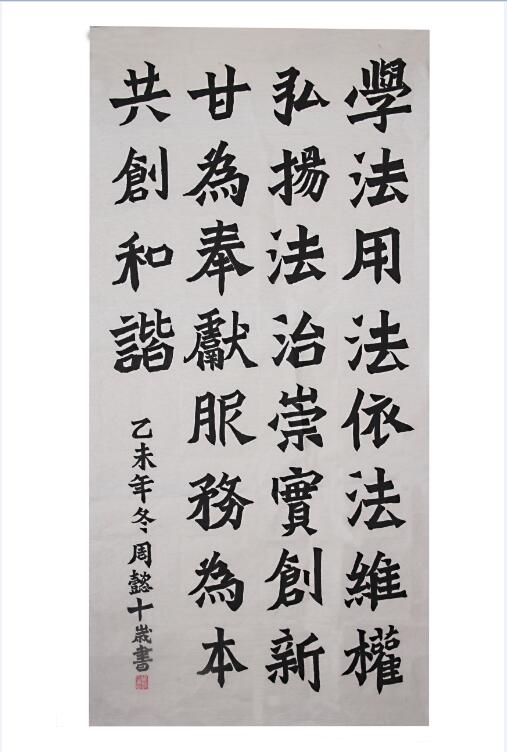 學法用法依法維權
弘揚法治崇實創新
甘為奉獻服務為本
共創和諧
乙未年冬周懿十歲書